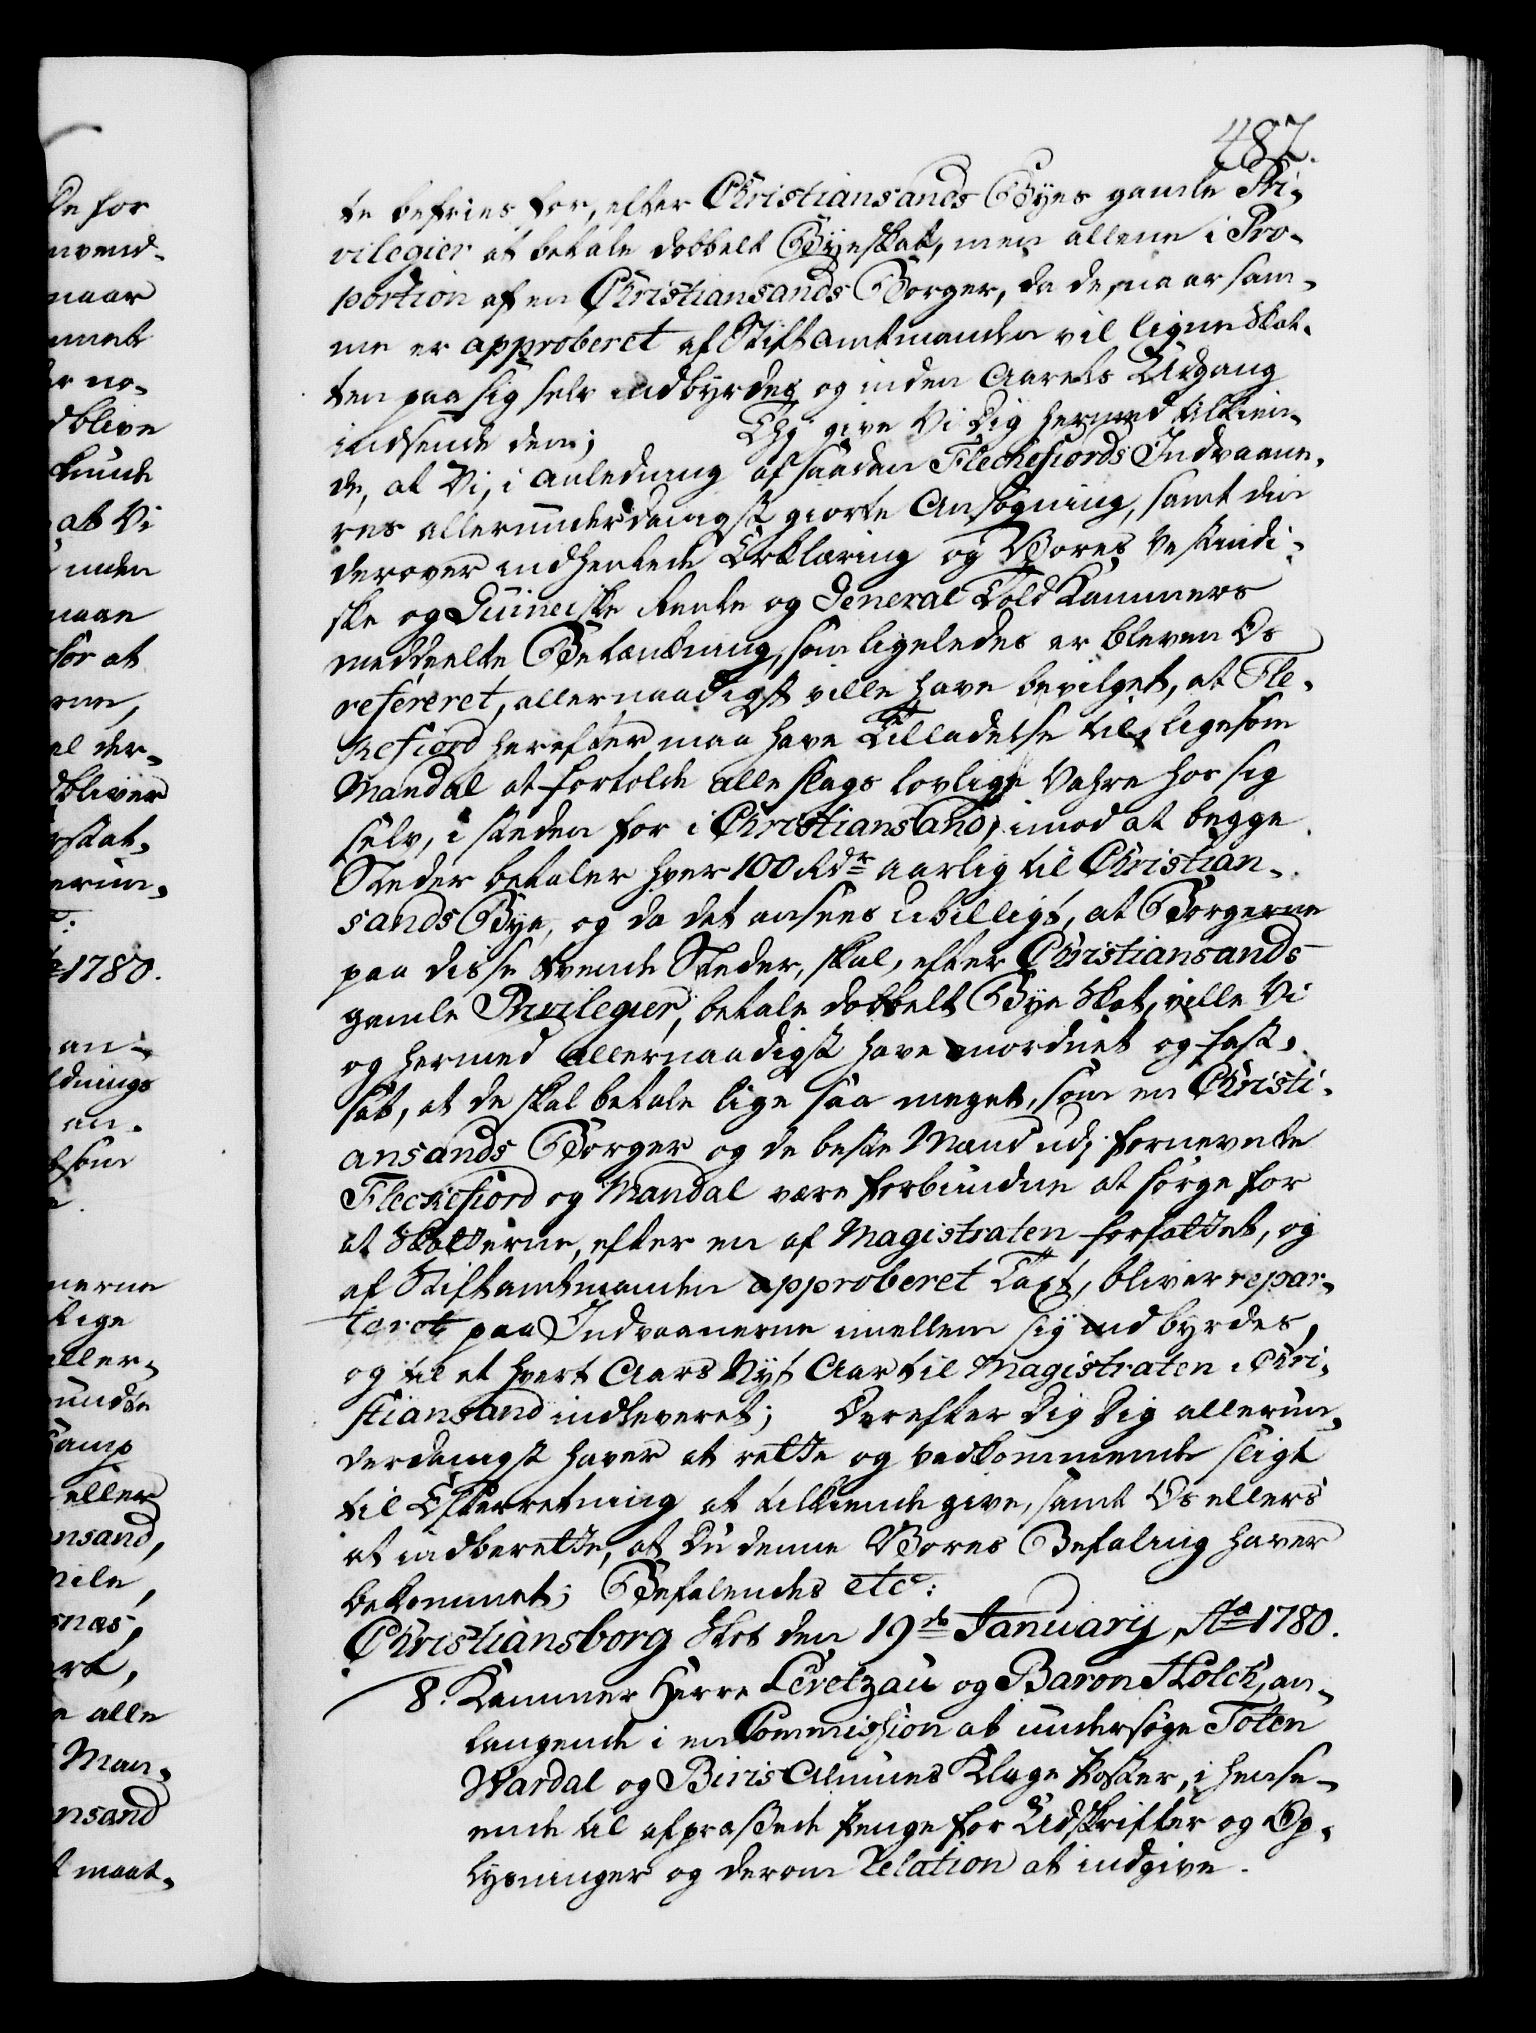 487.
te befries for, efter Christiansands Byes gamle Pri-
vilegier at betale dobbelt Byeskat, men allene i Pro-
portion af en Christiansands Borger, da de, naar sam-
me er approberet af Stiftamtmanden vil ligne Skat-
ten paa sig selv indbyrdes og inden Aarets Udgang
indsende den; Thi give Vi Dig hermed tilkien-
de, at Vi, i Anledning af saadan Fleckefiords Indvaane-
res allerunderdanigst giorte Ansøgning, samt din
derover indhentede Erklæring og Vores Vestindi-
ske og Guineiske Rente og General Told Kammers
meddeelte Betænkning, som ligeledes er bleven Os
refereret, allernaadigst ville have bevilget, at Fle-
kefiord herefter maa have Tilladelse til, ligesom
Mandal at fortolde alle slags lovlige Vahre hos sig
selv, i steden for i Christiansand, imod at begge
Steder betaler hver 100 Rdr aarlig til Christian-
sands Bye, og da det ansees ubilligt, at Borgerne
paa disse tvende Steder, skal, efter Christiansands
gamle Privilegier, betale dobbelt Bye Skat, ville Vi
og hermed allernaadigst have anordnet og fast-
sat, at de skal betale lige saa meget, som en Christi-
ansands Borger og de beste Mænd udj fornevnte
Fleckefiord og Mandal være forbundne at sørge for
at Skatterne, efter en af Magistraten forfattet, og
af Stiftamtmanden approberet Taxt, bliver repar-
teret paa Indvaanerne imellem sig indbyrdes,
og til et hvert Aars Nyt Aar til Magistraten i Chri-
stiansand indleveret; Derefter Dig allerun-
derdanigst haver at rette og vedkommende sligt
til Efterretning at tilkiende give, samt Os ellers
at indberette, at Du denne Vores Befaling haver
bekommet; Befalendes etc:
Christiansborg Slot den 19de Januarij Ao 1780.
8. Kammer Herre Levetzau og Baron Holck, an-
langende i en Commission at undersøge Toten
Wardal og Biris Almues Klage Poster, i hense-
ende til afpressede Penge for Udskrifter og Op-
lysninger og derom Relation at indgive.